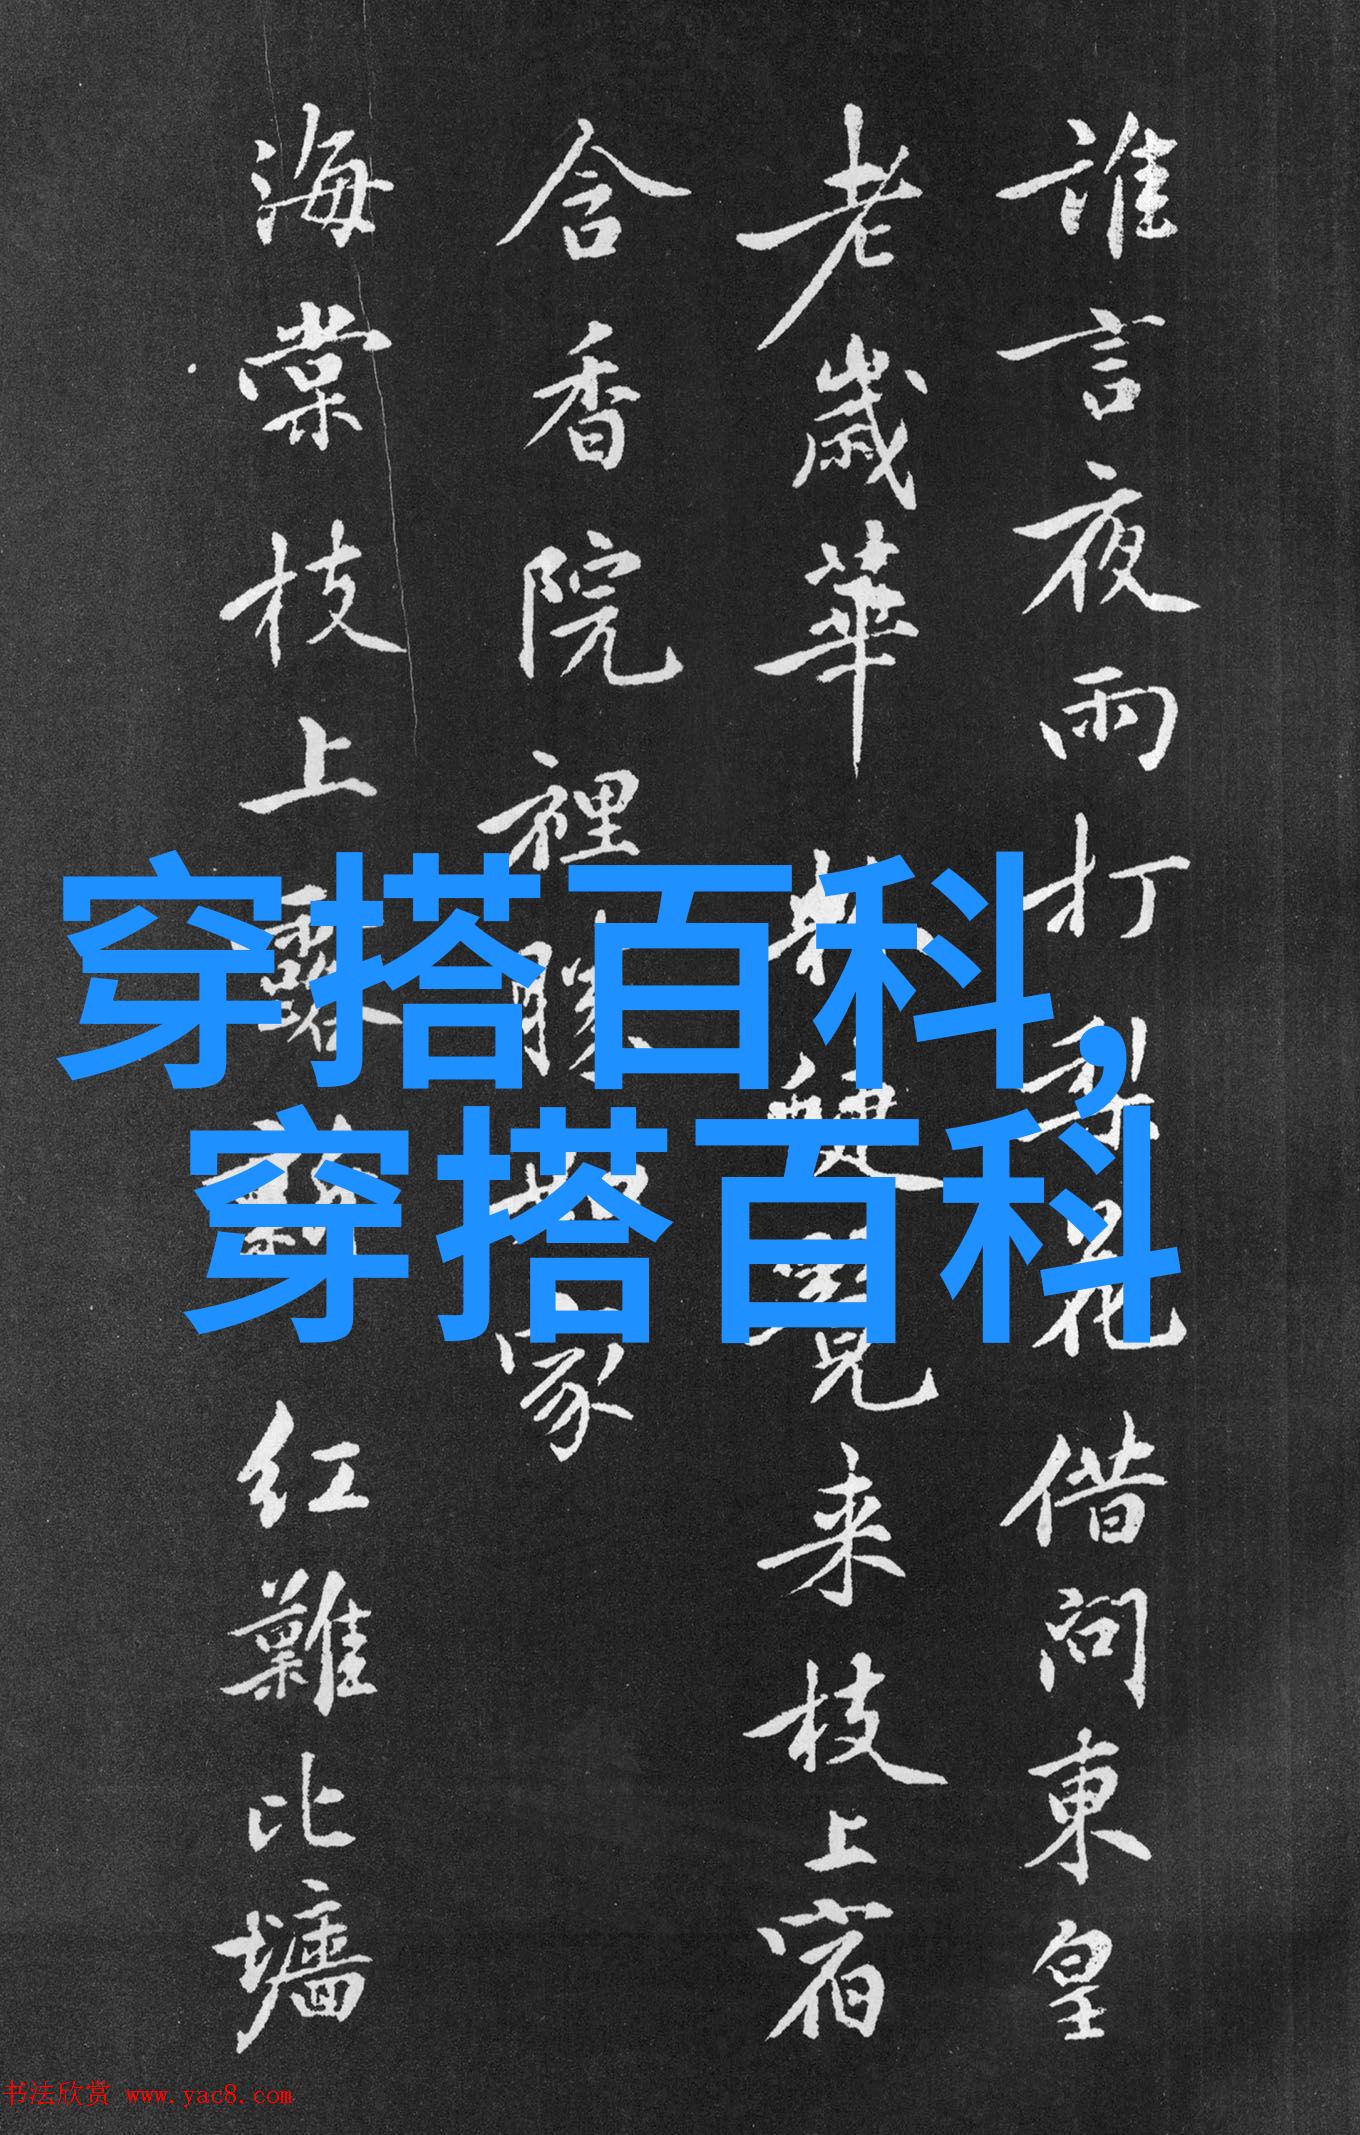 誰言夜雨打梨花借問東皇
老歲華
来枝上宿
含香院裡勝
家
海棠枝上露
红難比墻
穿搭百科,
穿搭百科
书法欣赏 www.yac8.com